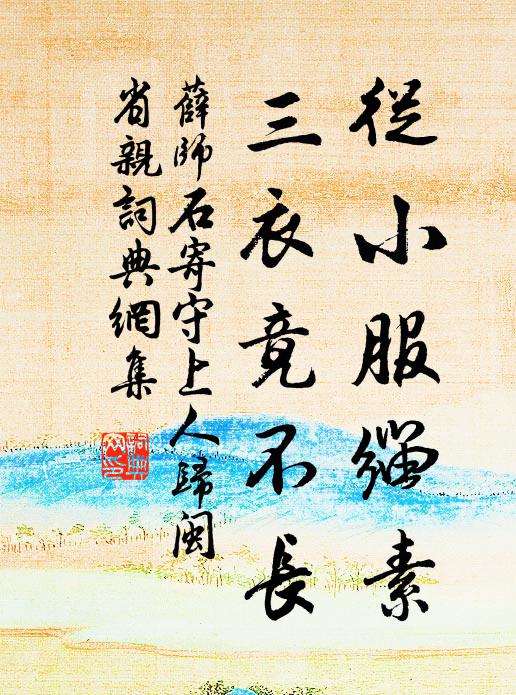 從小服繩素
三衣竟不長
薛師石寄守上人歸閩
省親詞典網集